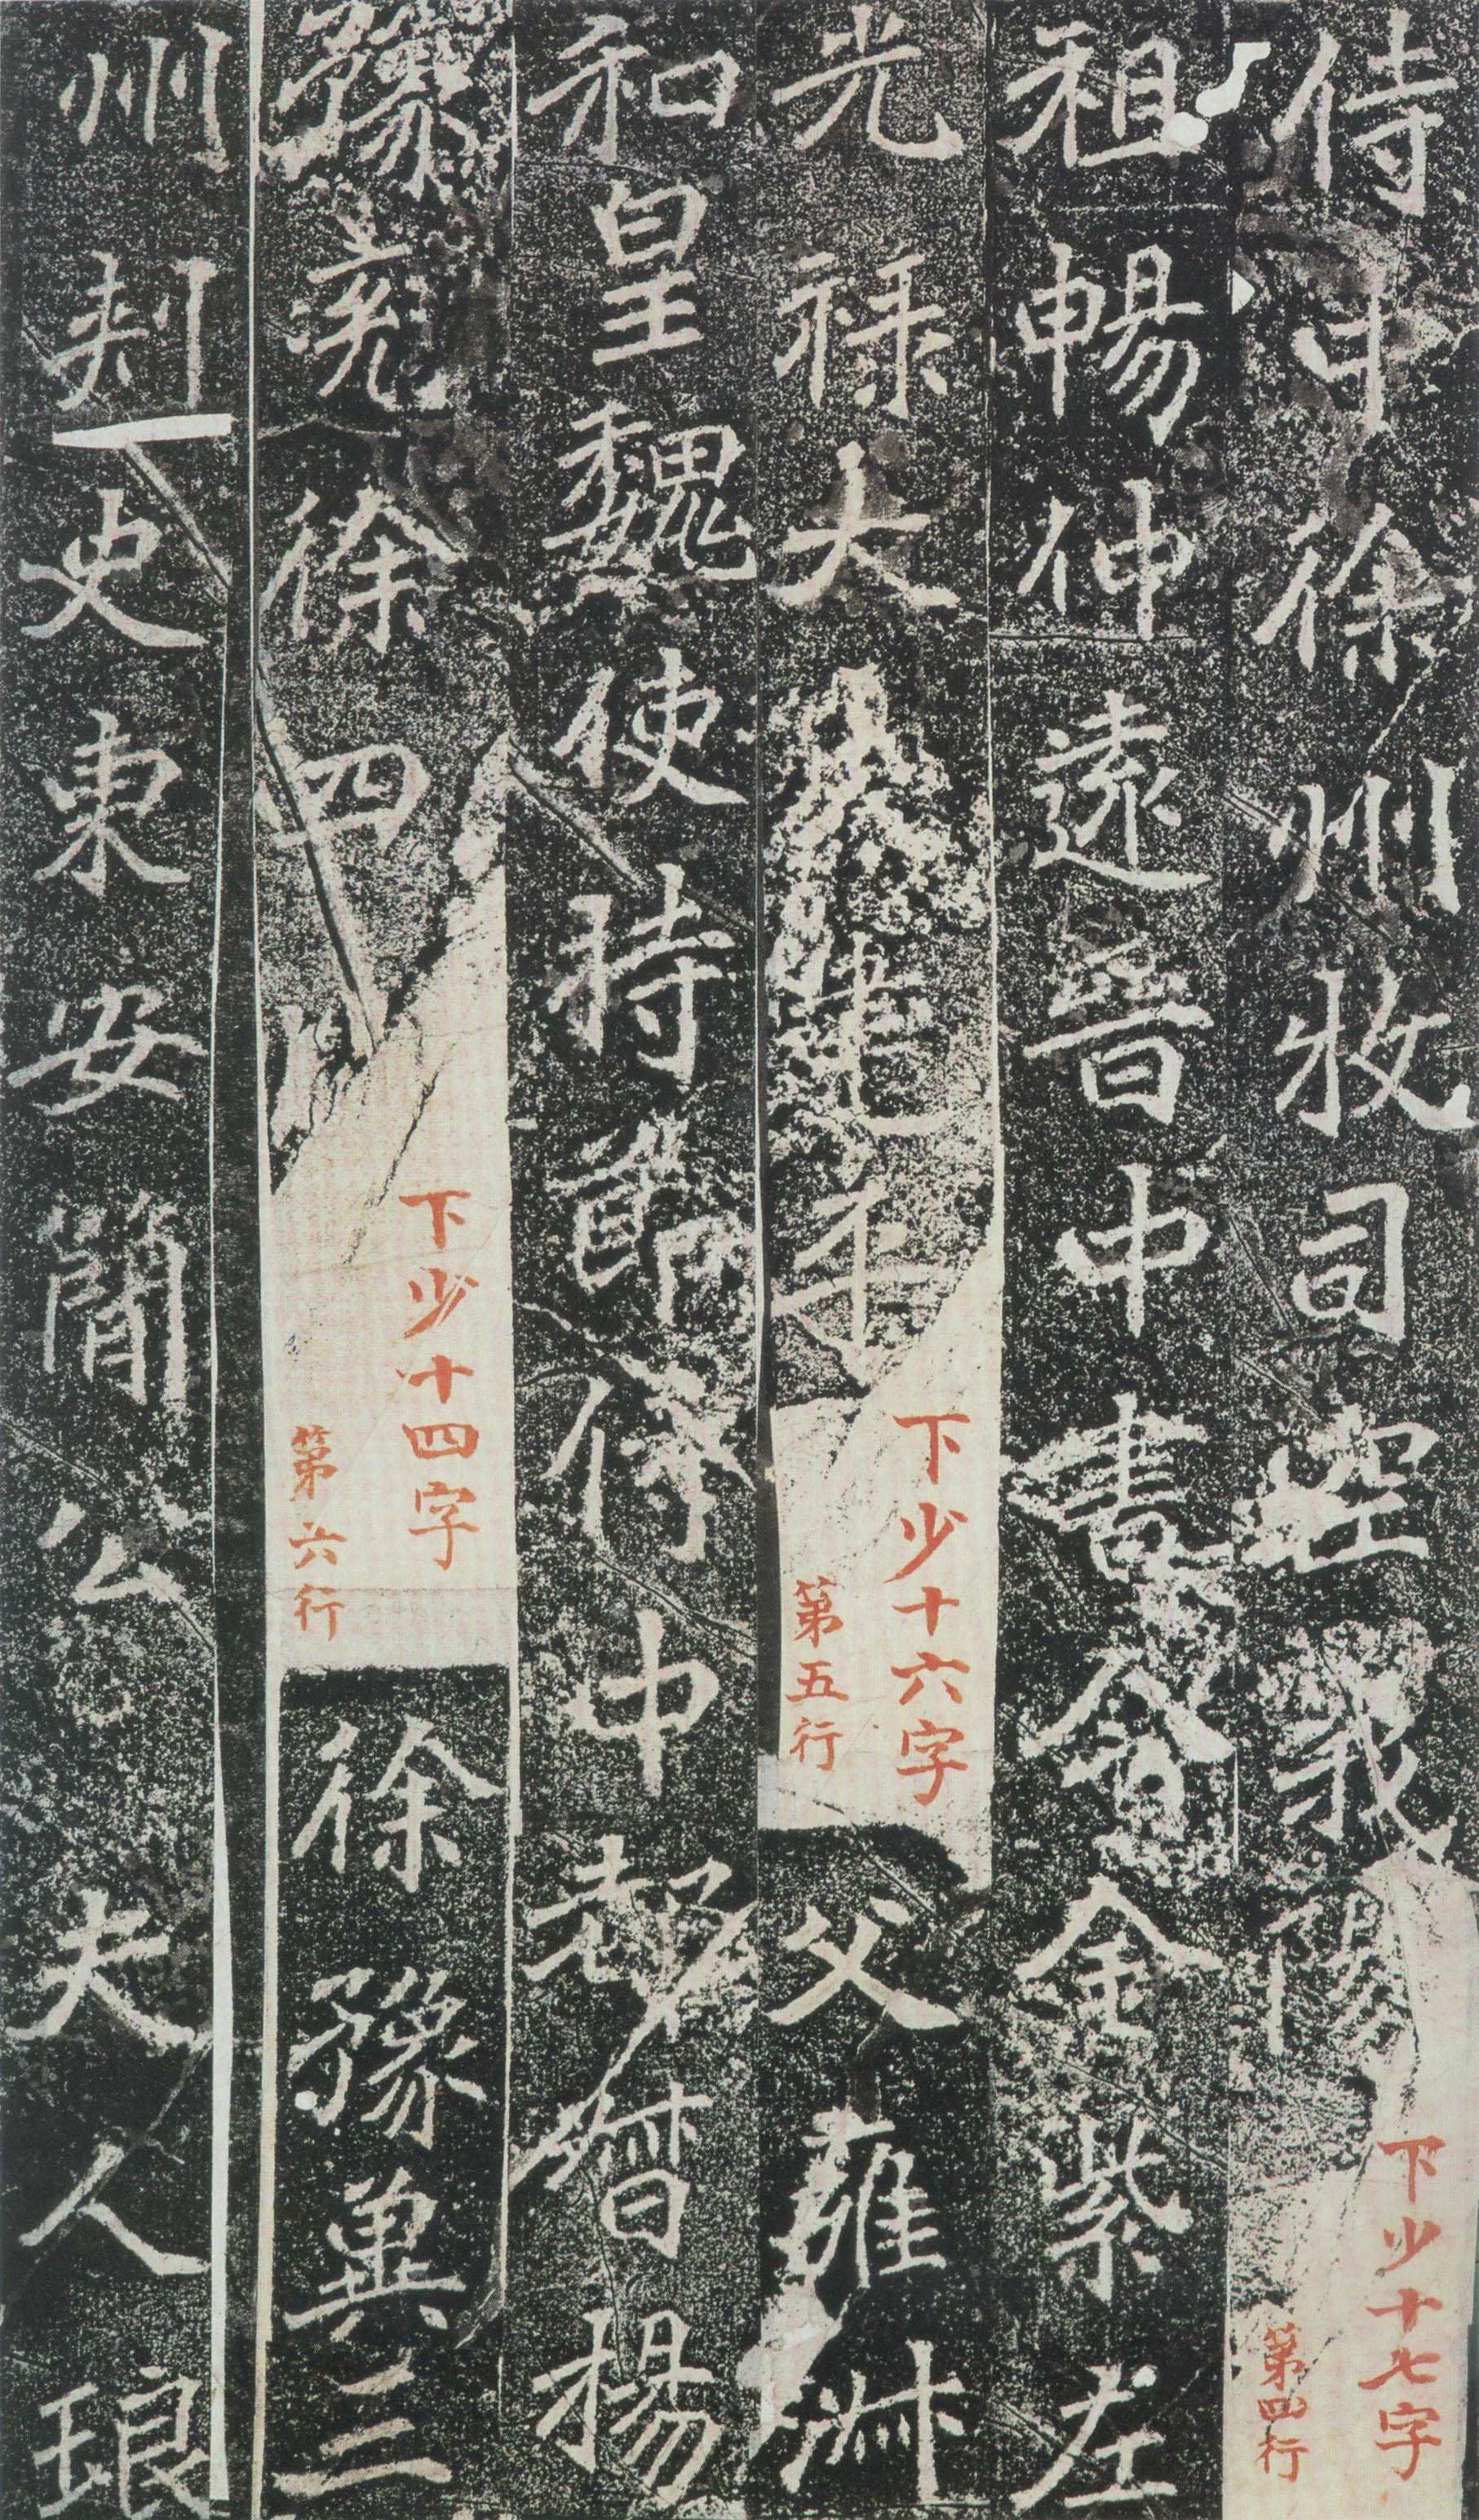 侍中徐州牧司空義陽
下少十七字
第四行
祖暢仲遠晉中書令金紫左
光祿大夫建平
下少十六字
第五行
父雍淑
和皇魏使持節侍中都督揚
豫兗徐四州
下少十四字
第六行
徐豫冀三
州刺史東安簡公夫人琅